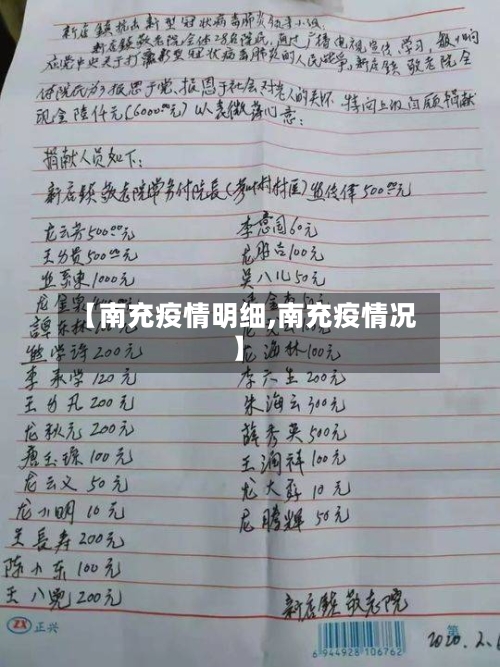 新店镇抗击新型冠状病毒肺炎领导小组:
新店镇敬老院全体28名院民,通过广播电视宣传,学习,积极响
应党中央关于打赢新型冠状病毒肺炎的人民战争,新店镇敬老院全
体院民为报恩于党、报恩于社会对老人的关怀 特向上级自愿捐献
现金陆仟元(6000.00元)以表微薄心意:
捐献人员如下:
新店镇敬老院常务付院长(村区) 500.00元
龙云芳500.00元
李忠国60元
王为贵500.00元
龙明合100元
1000元
吴八儿50元
龙金
【南充疫情明细,南充疫情况
】
谭东林
龙海林100元
熊学诗200元
李六生200元
李承学120元
朱海云300元
王方凡200元
薛秀英500元
龙秋元200元
王润祥100元
唐玉琼100元
龙大群10元
龙云义50元
龙腾辉50元
龙小明10元
王长寿200元
陈小东100元
王八儿200元
新店镇敬老院
ZX 正兴
6944928106762
第
2020.2.1